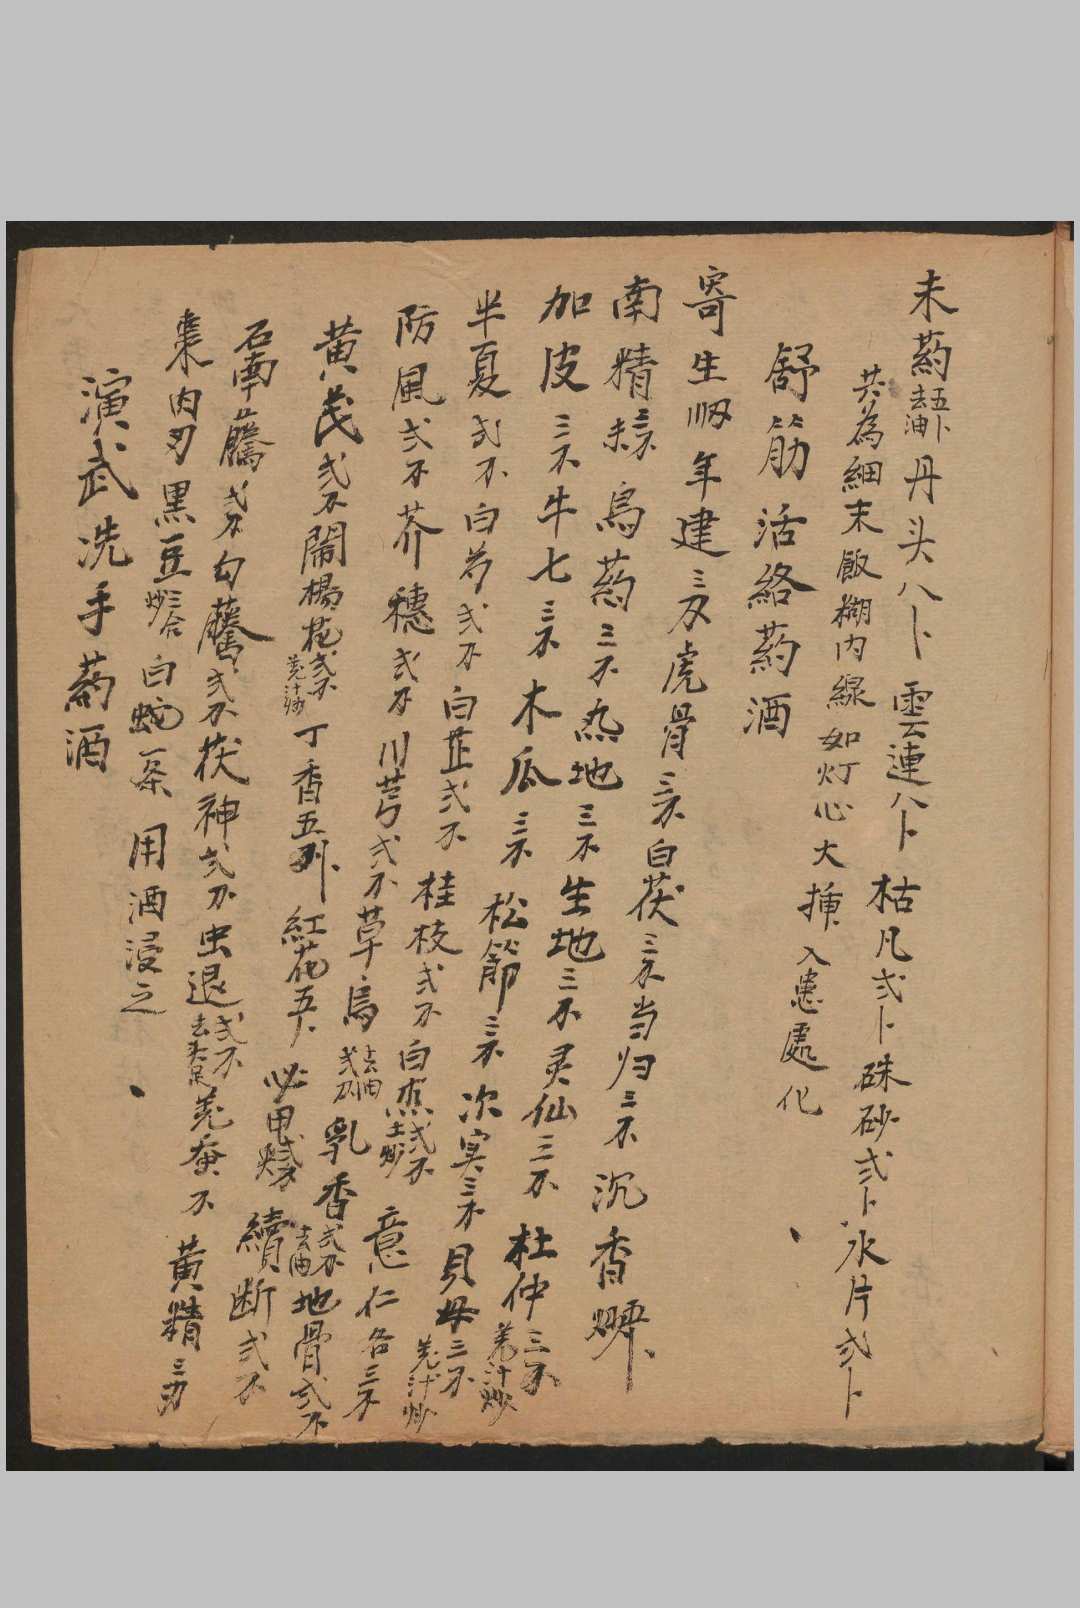 末药五卜去油丹头八卜雲連八卜枯凡弍卜硃砂弍卜氷片弍卜
共為細末飯糊内線如灯心大揷入患處化
舒筋活絡药酒
寄生年建三刄虎骨三不白茯三不当归三不沉香
南精三不烏药三不熟地三不生地三不灵仙三不杜仲三不羌汁炒
加皮三不牛七三不木瓜三不松節三不次実三不貝母三不羌汁炒
半夏弍不白芍弍不白芷弍不桂枝弍不白弍不土炒意仁各三不
防風弍不芥穗弍不川芎弍不草烏弍不去油乳香弍不去油地骨弍不
黄茋弍不鬧楊花弍不羌汁炒丁香五卜紅花五卜必甲弍不續断弍不
石南藤弍不勾藤弍不茯神弍不虫退弍不去头足羌蚕不黄精三刄
棗肉刄黒豆三合炒白蛇一条用酒浸之
演武洗手药酒